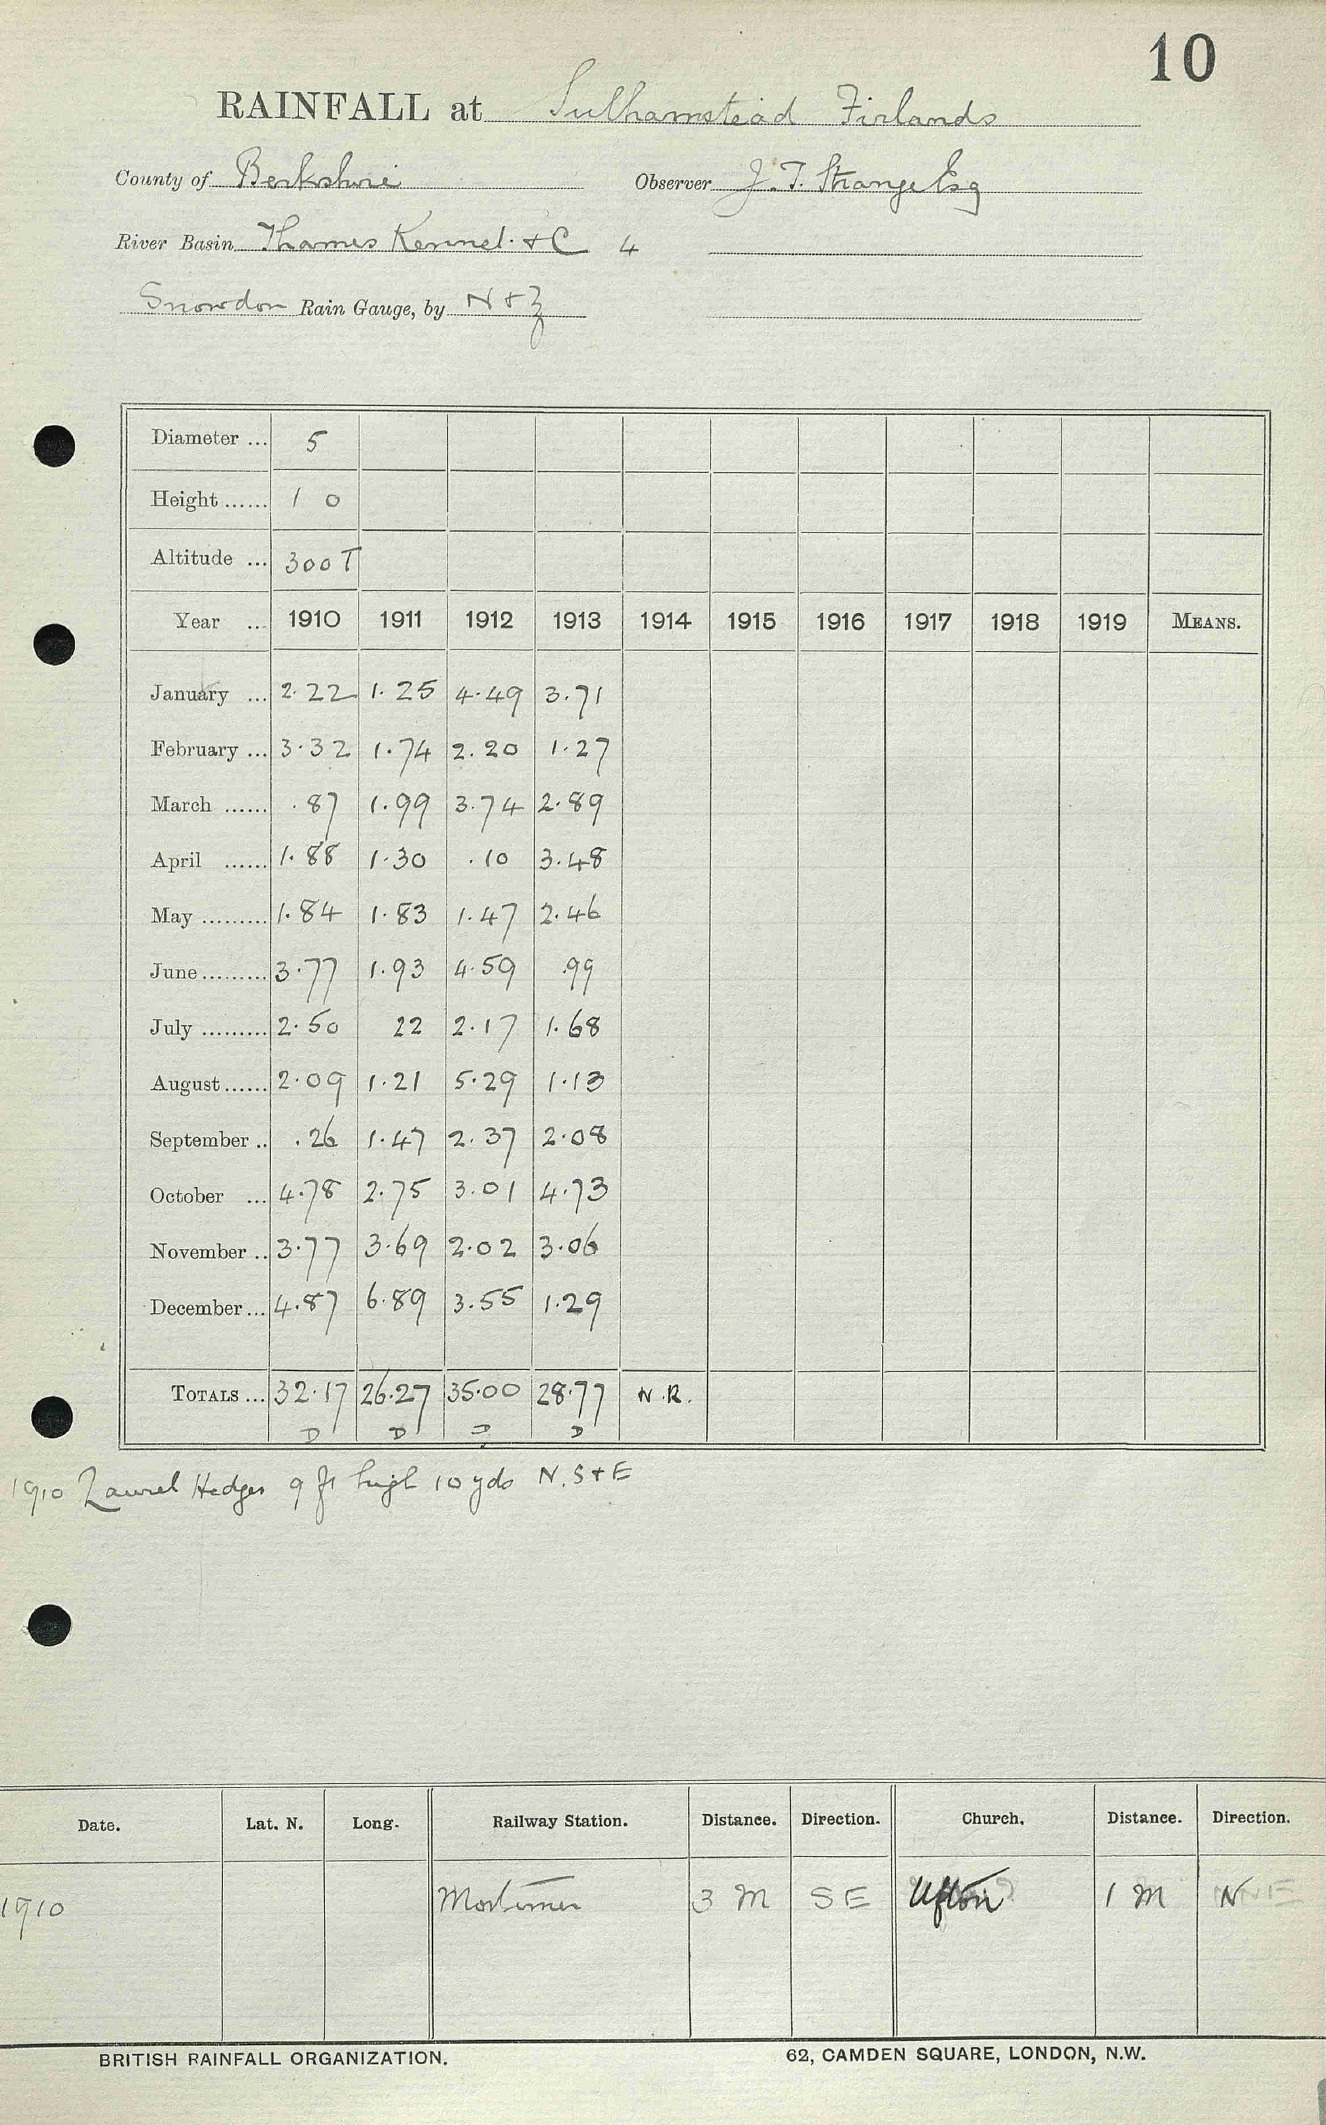 10
RAINFALL at Sulhamstead Firlands
County of Berkshire Observer J. T. Strange Esq
River Basin Thames Kennet. + C 4
Snowdon Rain Gauge, by N & Z
Diameter ... 5
Height ...... 1 0
Altitude ... 300 T
Year ... 1910 1911 1912 1913 1914 1915 1916 1917 1918 1919 MEANS.
January ... 2.22 1.25 4.49 3.71
February ... 3.32 1.74 2.20 1.27
March ...... .87 1.99 3.74 2.89
April ...... 1.88 1.30 .10 3.48
May ......... 1.84 1.83 1.47 2.46
June ......... 3.77 1.93 4.59 .99
July ......... 2.50 22 2.17 1.68
August ...... 2.09 1.21 5.29 1.13
September .. .26 1.47 2.37 2.08
October ... 4.78 2.75 3.01 4.73
November .. 3.77 3.69 2.02 3.06
December ... 4.87 6.89 3.55 1.29
TOTALS ... 32.17 26.27 35.00 28.77 N.R.
D D D D
1910 Laurel Hedges 9 ft high 10 yds N. S + E
Date. Lat. N. Long. Railway Station. Distance. Direction. Church. Distance. Direction.
1910 Mortimer 3 M SE Ufton 1 M N
BRITISH RAINFALL ORGANIZATION. 62, CAMDEN SQUARE, LONDON, N.W.